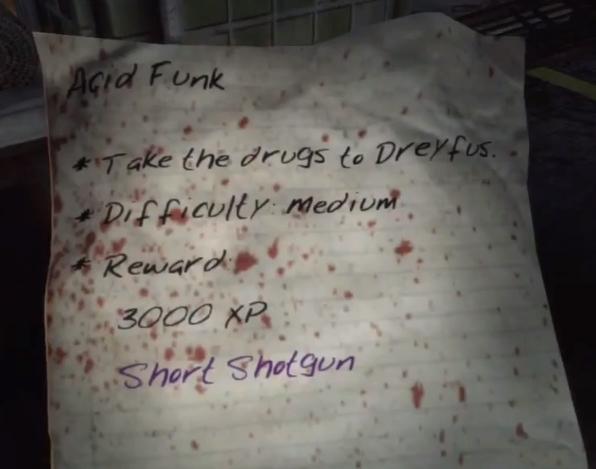 Acid Funk
* Take the drugs to Dreyfus.
* Difficulty: medium
* Reward:
3000 XP
Short Shotgun